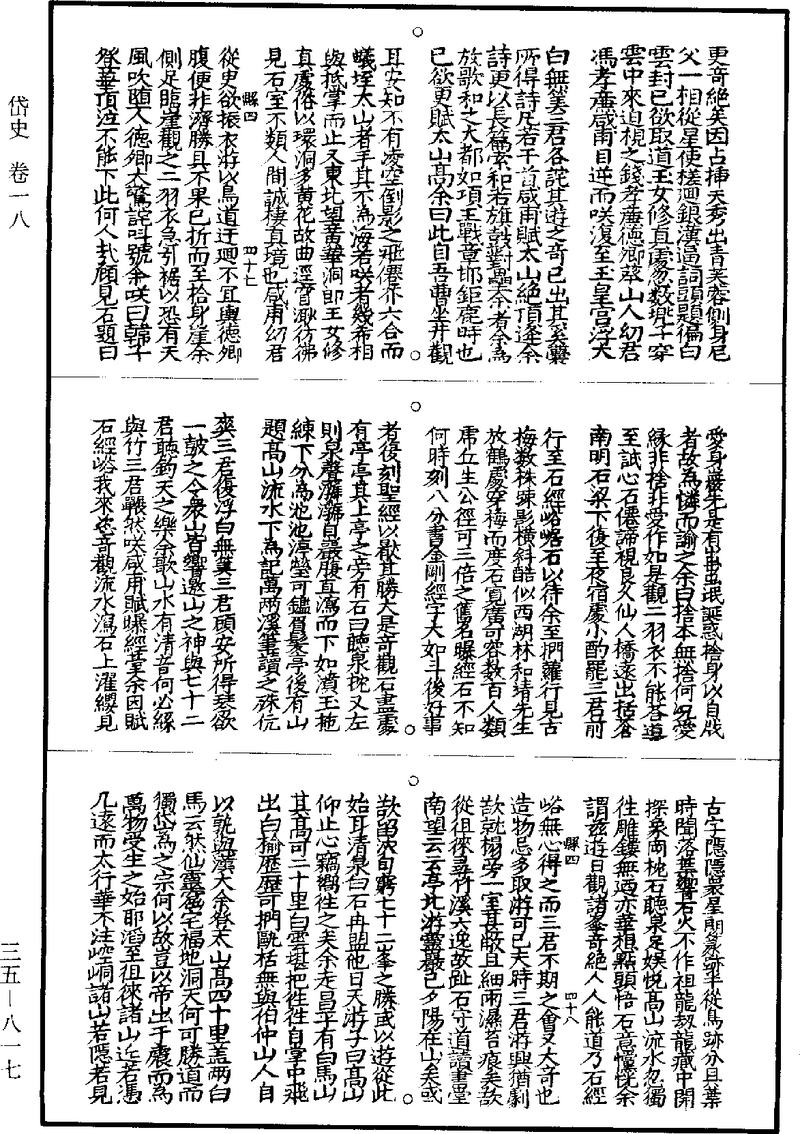 更奇絶矣因占挿天秀出青芙蓉側身尼
父一相從星使槎迴銀漢逼詞頭題徧白
雲封已欲取道玉女修真處忽數壎子穿
雲中來迫視之錢孝廉德卿薛山人幼君
馮孝廉咸甫目逆而咲復至玉皇宫浮大
白無筭三君各詫其遊之奇已出其奚囊
所得詩凡若干首咸甫賦太山絶頂逢余
詩更以長篇索和若旗鼓對壘余者余為
放歌和之大都如項王戰章邯鉅鹿時也
已欲更賦太山高余曰此自吾曹坐井觀
耳安知不有凌空倒影之飛僊芥六合而
蟻垤太山者乎其不為海若咲者幾希相
與抵掌而止又東北望黄華洞即玉女修
真處俗以環洞多黄花故曲逕窅渺彷彿
見石室不類人間誠棲真境也咸甫幼君
縣四
四十七
從臾欲振衣游以鳥道迂廻不宜輿德卿
腹便非濟勝具不果已折而至捨身崖余
側足臨崖觀之二羽衣急引裾以恐有天
風吹墮人德卿大驚詫呌號余咲曰韓子
登華頂泣不能下此何人㢤顧見石題曰
愛身巖先是有出出氓誕惑捨身以自戕
者故為憐而諭之余曰捨本無捨何况愛
縁非捨非愛作如是觀二羽衣不能荅道
至試心石僊諦視良久仙人橋遠出括蒼
南明石梁下後至夜宿處小酌罷三君前
行至石經峪踞石以待余至捫蘿行見古
梅數株踈影横斜酷似西湖林和靖先生
放鶴處穿梅而度石寛廣可容數百人類
乕丘生公徑可三倍之舊名曝經石不知
何時刻八分書金剛經字大如斗後好事
者復刻聖經以猒其勝大是奇觀石盡處
有亭亭其上亭之旁有石曰聽泉枕又左
則泉聲㶁㶁自巖腹直瀉而下如濆玉拖
練下分為池池渟瑩可鑑眉髮亭後有山
題高山流水下為記萬兩溪筆讀之殊伉
爽三君復浮白無筭三君顧安所得瑟欲
一皷之令衆山皆響邀山之神與七十二
君聽鈞天之樂余歌山水有清音何必絲
與竹三君囅然咲咸甫賦曝經臺余因賦
石經峪我來恣奇觀流水瀉石上濯纓見
古字隱隱裊星朗篆跡半從鳥跡分貝葉
時聞落葉響石火不作祖龍刼龍藏中開
探象罔枕石聽泉足娱悦高山流水忽獨
往雕鏤無迺亦華想點頭悟石意慵恍余
謂兹遊日觀諸峯奇絶人人能道乃石經
縣四
四十八
峪無心得之而三君不期之會又大奇也
造物忌多取游可已夫時三君游興猶劇
㰸就榻旁一室甚敞且細雨濕苔痕矣㰸
從徂徠尋竹溪六逸故趾石守道讀書臺
南望云云亭北游靈巖已夕陽在山矣或
㰸留浹旬窮七十二峯之勝或以遊從此
始耳清泉白石再盟他日天游子曰高山
仰止心竊嚮徃之矣余走昌平有曰馬山
其高可二十里曰雲堪把徃徃自掌中飛
出白榆歷歷可捫眺栝無與伯仲山人自
以孰與漢大余登太山高四十里盖兩白
馬云然仙靈窟宅福地洞天何可勝道而
獨岱為之宗何以故豈以帝出于震而為
萬物受生之始耶滔至徂徠諸山近若憑
几遠而太行華不注崆峒諸山若隱若見
岱史 卷一八
三五—八一七